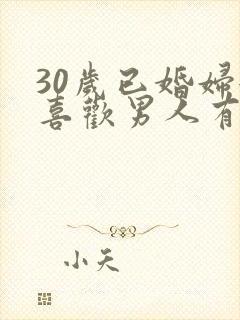 30歲已婚婦
喜歡男人有
小天